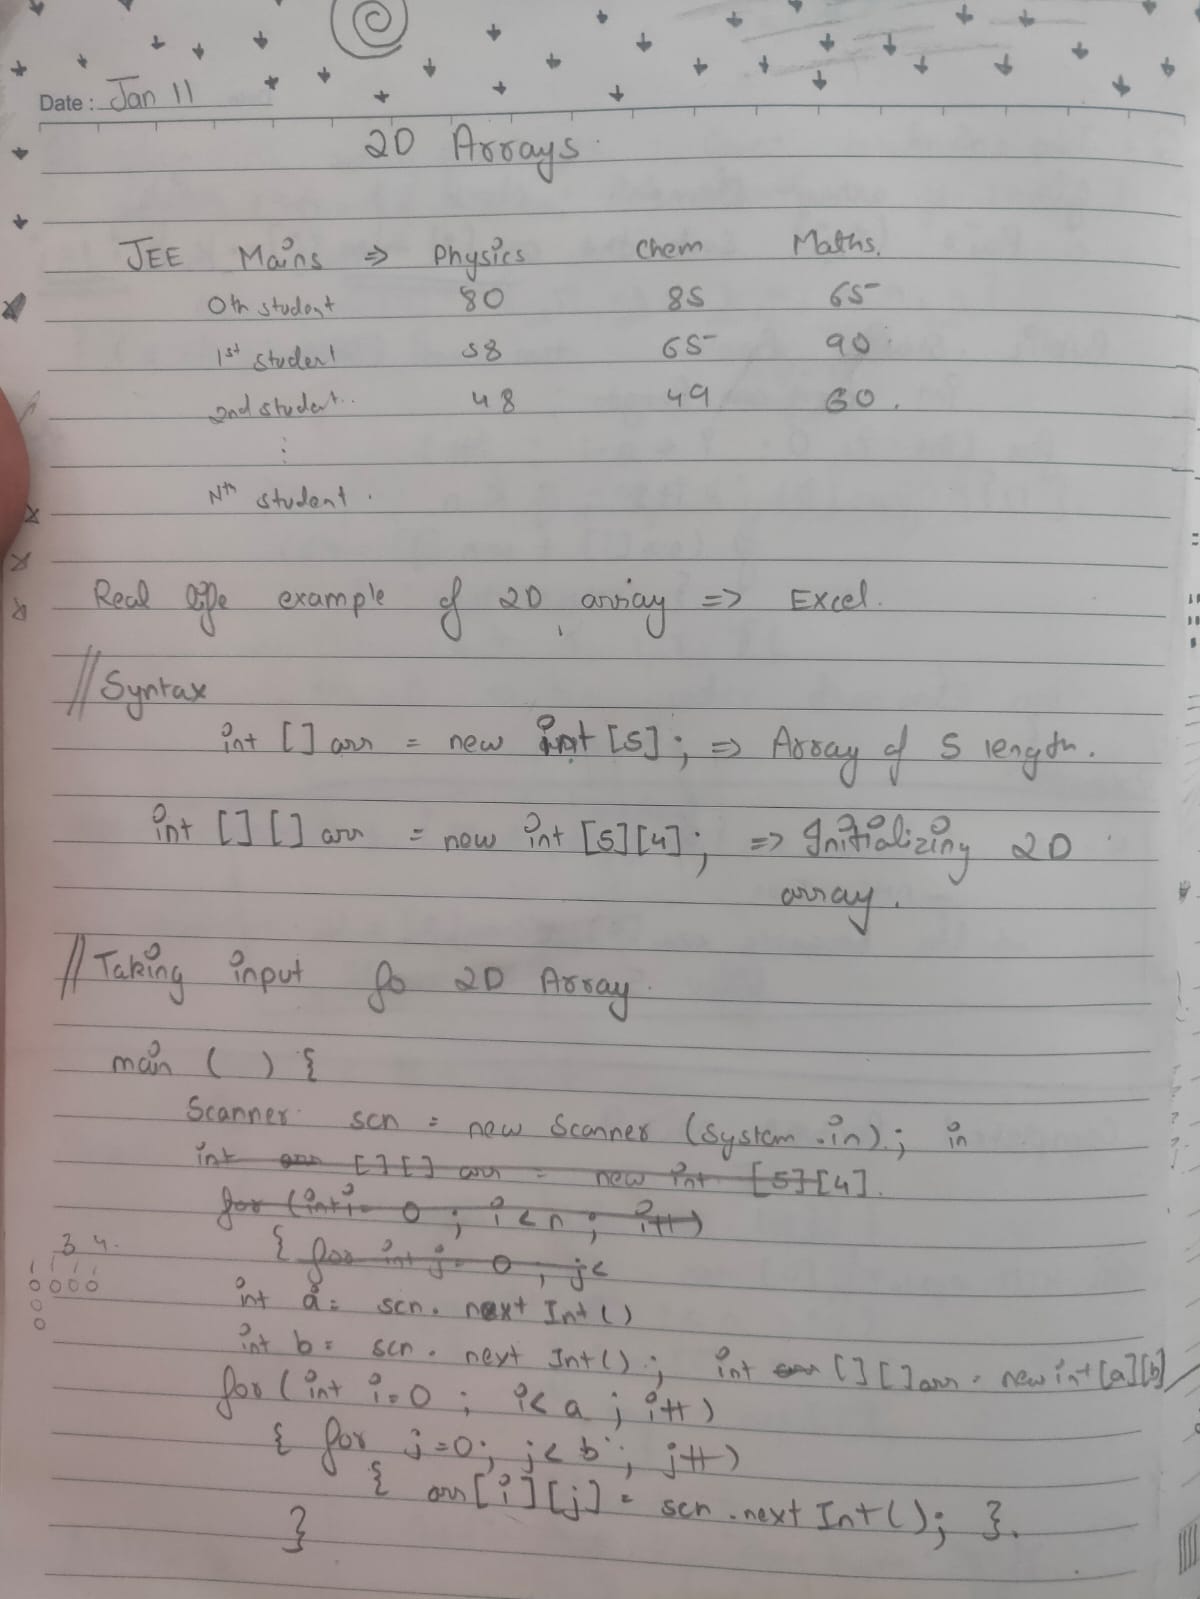 Date: Jan 11
2D Arrays
JEE Mains ⇒ Physics Chem Maths.
0th student 80 85 65
1st student 58 65 90
2nd student.. 48 49 60.
⋮
Nth student.
Real life example of 2D array => Excel.
// Syntax
int [] arr = new int [5]; => Array of 5 length.
int [][] arr = new int [5][4]; => Initializing 2D
array.
// Taking input fo 2D Array.
main ( ) {
Scanner scn = new Scanner (System.in); in
int arr [][] arr = new int [5][4].
for (int i= 0 ; i < n ; i++)
{ for int j= 0 ; j<
3 4.
0000
0
0
int a= scn. next Int ()
int b= scn. next Int(); int arr [][] arr = new int [a][b]
for (int i=0 ; i< a ; i++)
{ for j=0; j< b ; j++)
{ arr[i][j] = scn.next Int(); }.
}